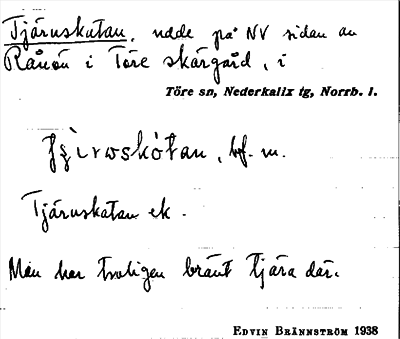 Tjäruskatan, udde på NV sidan av
Rånön i Töre skärgård, i
Töre sn, Nederkalix tg, Norrb. l.
bf. m.
Tjäruskatan ek.
Man har troligen bränt tjära där.
EDVIN BRÄNNSTRÖM 1938